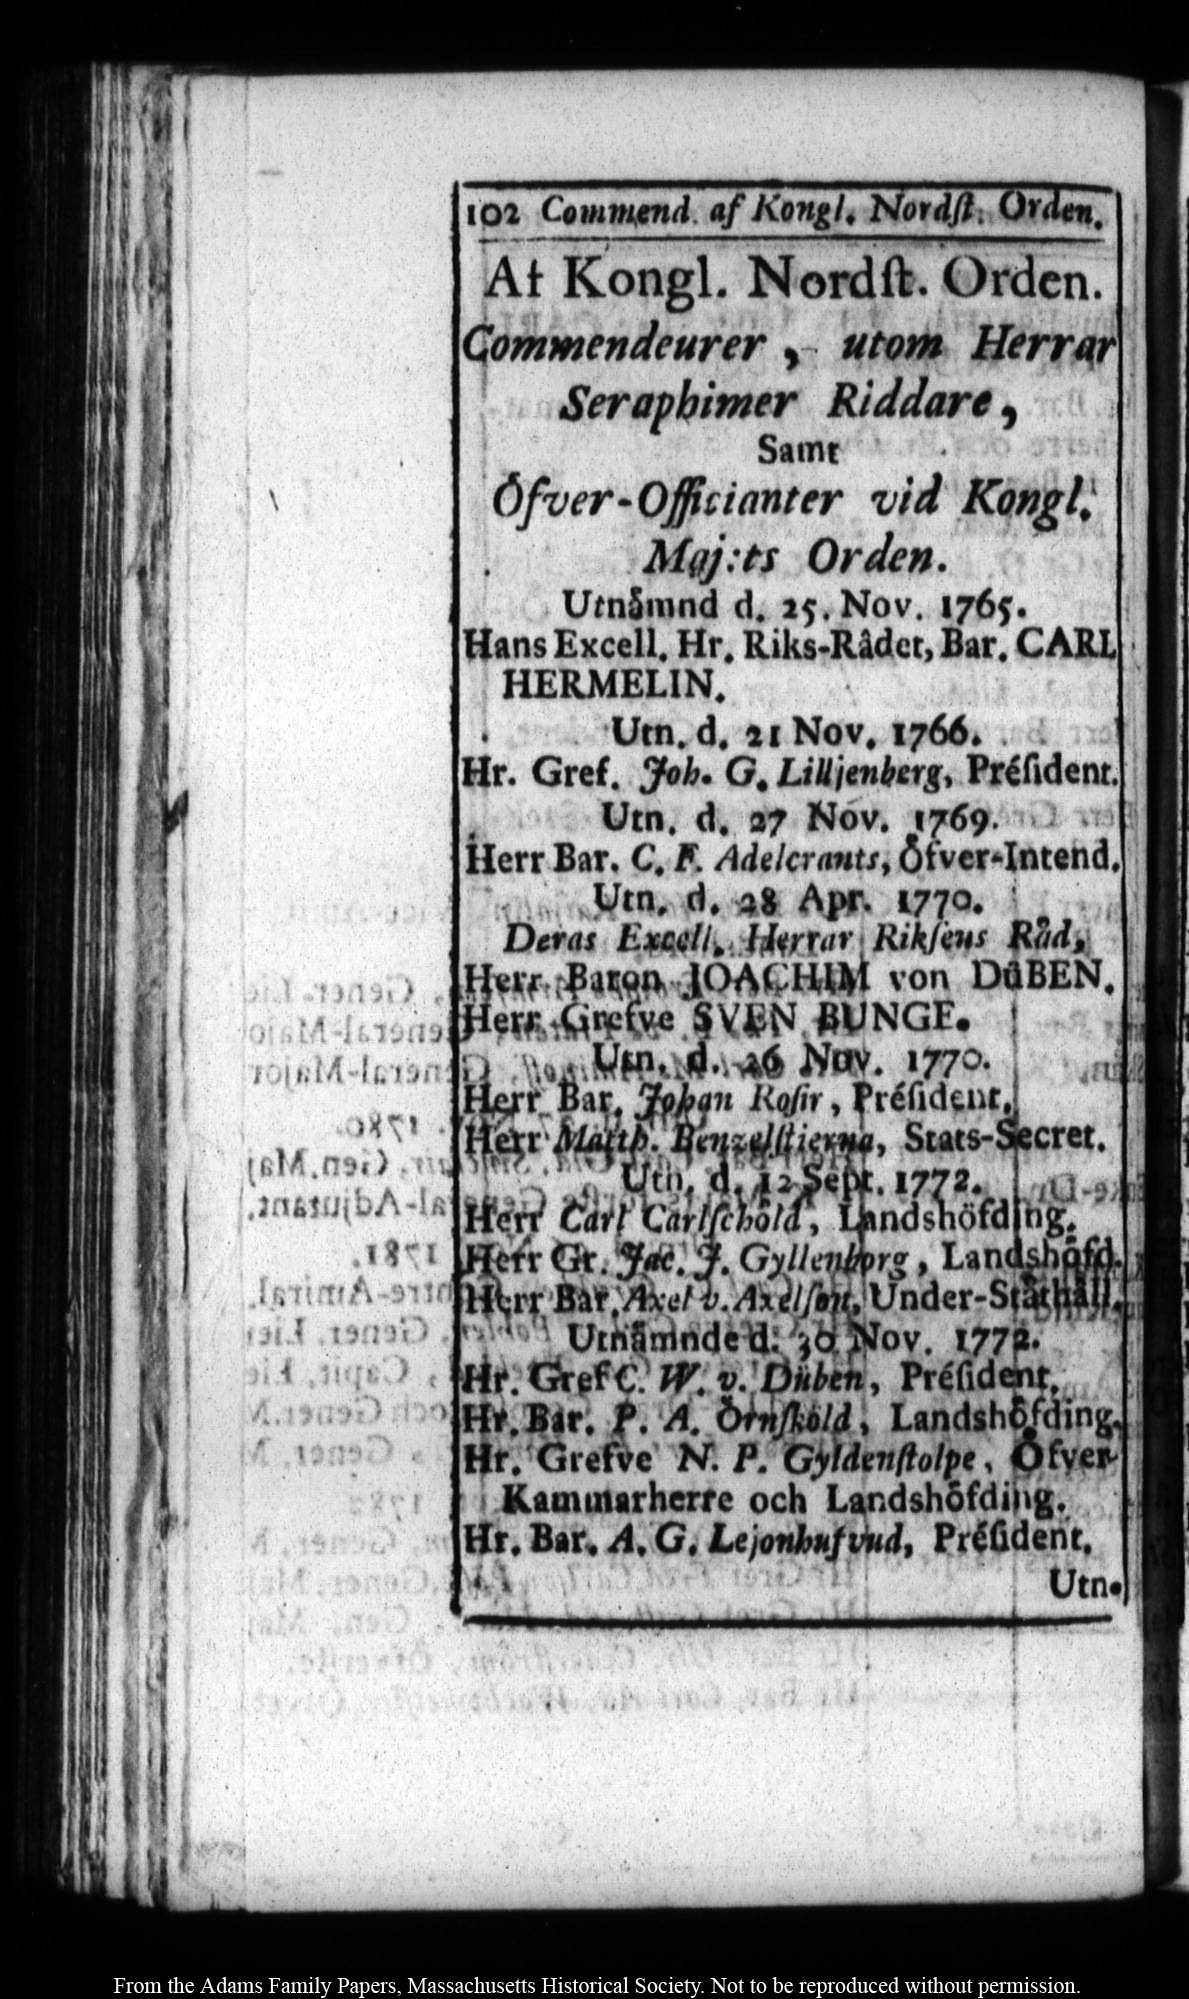 102 Commend. af Kongl. Nordſt. Orden.
Af Kongl. Nordſt. Orden.
Commendeurer, utom Herrar
Seraphimer Riddare,
Samt
Öfver-Officianter vid Kongl.
Maj:ts Orden.
Utnåmnd d. 25. Nov. 1765.
Hans Excell. Hr. Riks-Rådet, Bar. CARL
HERMELIN.
Utn. d. 21 Nov. 1766.
Hr. Gref. Joh. G. Lilljenberg, Préſident.
Utn. d. 27 Nov. 1769.
Herr Bar. C. F. Adelcrants, Öfver-Intend.
Utn. d. 28 Apr. 1770.
Deras Excell. Herrar Rikſens Råd,
Herr Baron JOACHIM von DüBEN.
Herr Grefve SVEN BUNGE.
Utn. d. 26 Nov. 1770.
Herr Bar. Johan Roſir, Préſident.
Herr Matth. Benzelſtierna, Stats-Secret.
Utn. d. 12 Sept. 1772.
Herr Carl Carlſchöld, Landshöfding.
Herr Gr. Jac. J. Gyllenborg, Landshöfd.
Herr Bar. Axel v. Axelſon, Under-Ståthåll.
Utnåmnde d. 30 Nov. 1772.
Hr. Gref C. W. v. Düben, Préſident.
Hr. Bar. P. A. Örnſköld, Landshöfding.
Hr. Grefve N. P. Gyldenſtolpe, Öfver-
Kammarherre och Landshöfding.
Hr. Bar. A. G. Lejonhufvud, Préſident.
Utn.
From the Adams Family Papers, Massachusetts Historical Society. Not to be reproduced without permission.